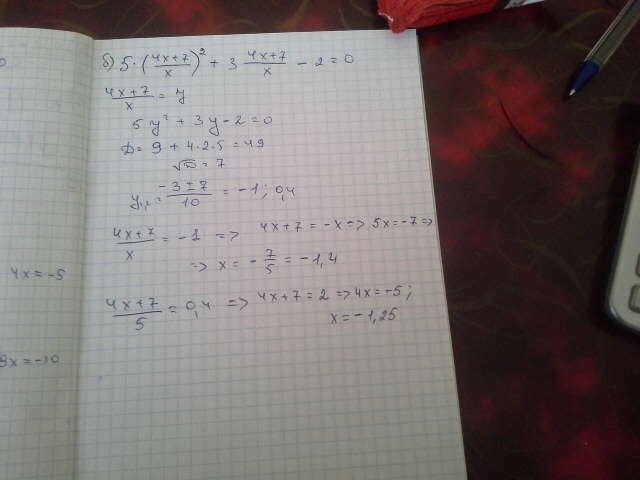 б) 5·(4x+7/x)² + 3 4x+7/x - 2 = 0
4x+7/x = y
5y² + 3y - 2 = 0
D = 9 + 4·2·5 = 49
√D = 7
y₁,₂ = -3±7/10 = -1; 0,4
4x+7/x = -1 => 4x+7 = -x => 5x = -7 =>
=> x = -7/5 = -1,4
4x = -5
4x+7/5 = 0,4 => 4x+7 = 2 => 4x = -5;
x = -1,25